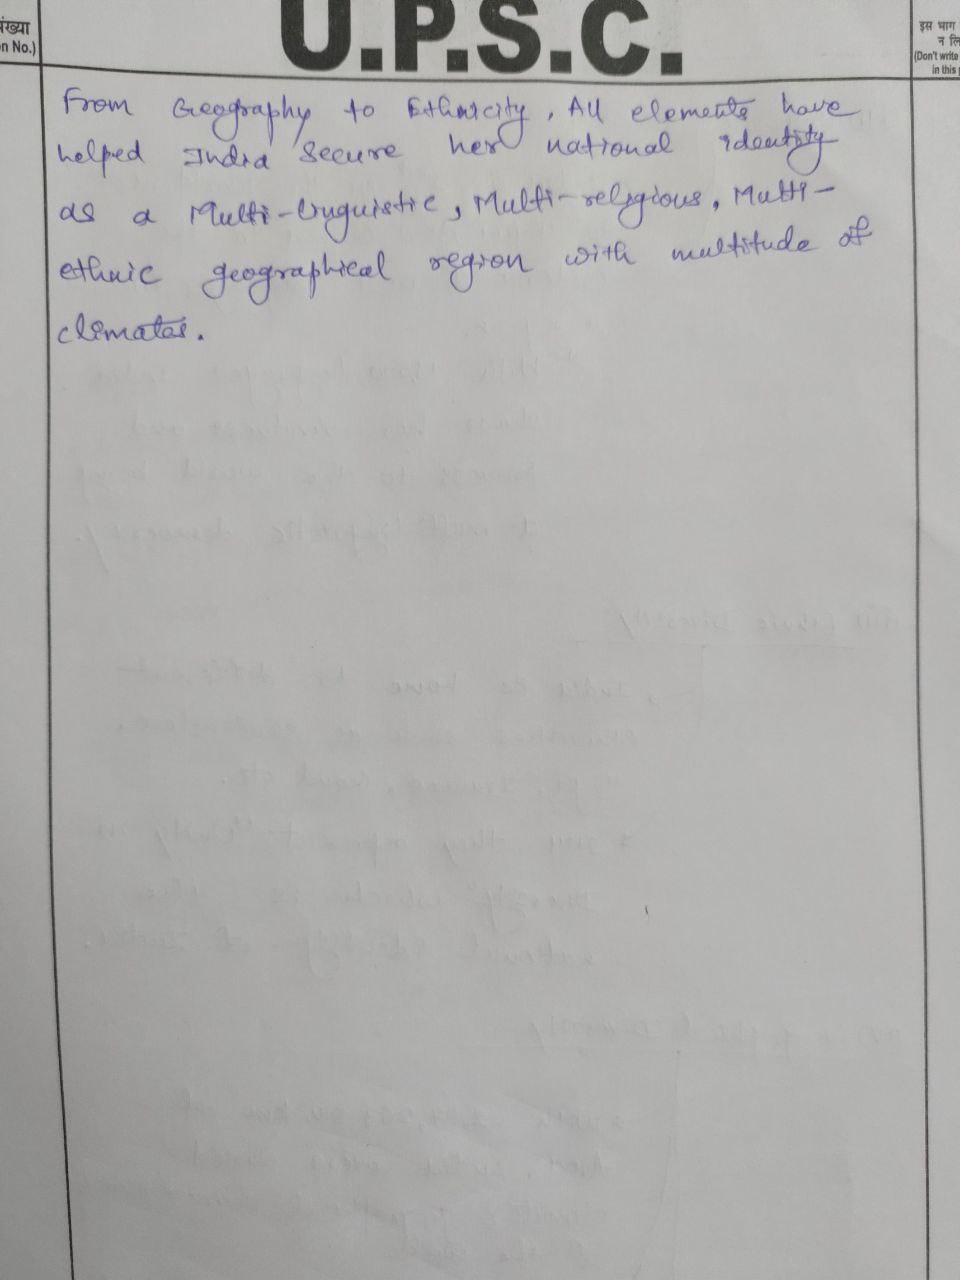 U.P.S.C.
n No.)
इस भाग
(Don't write
in this
From Geography to Ethnicity, All elements have
helped India secure her national identity
as a Multi-linguistic, Multi-religious, Multi-
ethnic geographical region with multitude of
climates.